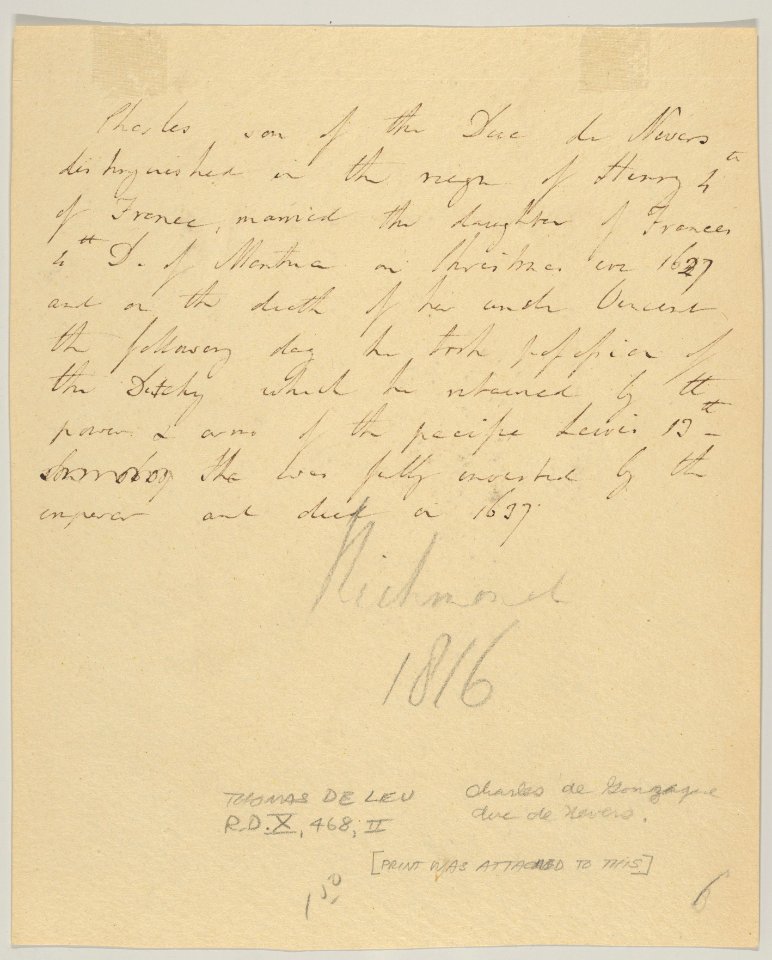 Charles son of the Duc de Nevers
distinguished in the reign of Henry 4th
of France, married the daughter of Frances
4th D. of Mantua on Christmas eve 1627
and on the death of her uncle Vincent
the following day he took possession of
the Dutchy which he retained by the
power & arms of the pacific Lewis 13th –
he was fully invested by the
emperor and died in 1637.
Richmond
1816
THOMAS DE LEU
R.D. X, 468, II
Charles de Gonzague
duc de Nevers.
[PRINT WAS ATTACHED TO THIS]
150
6